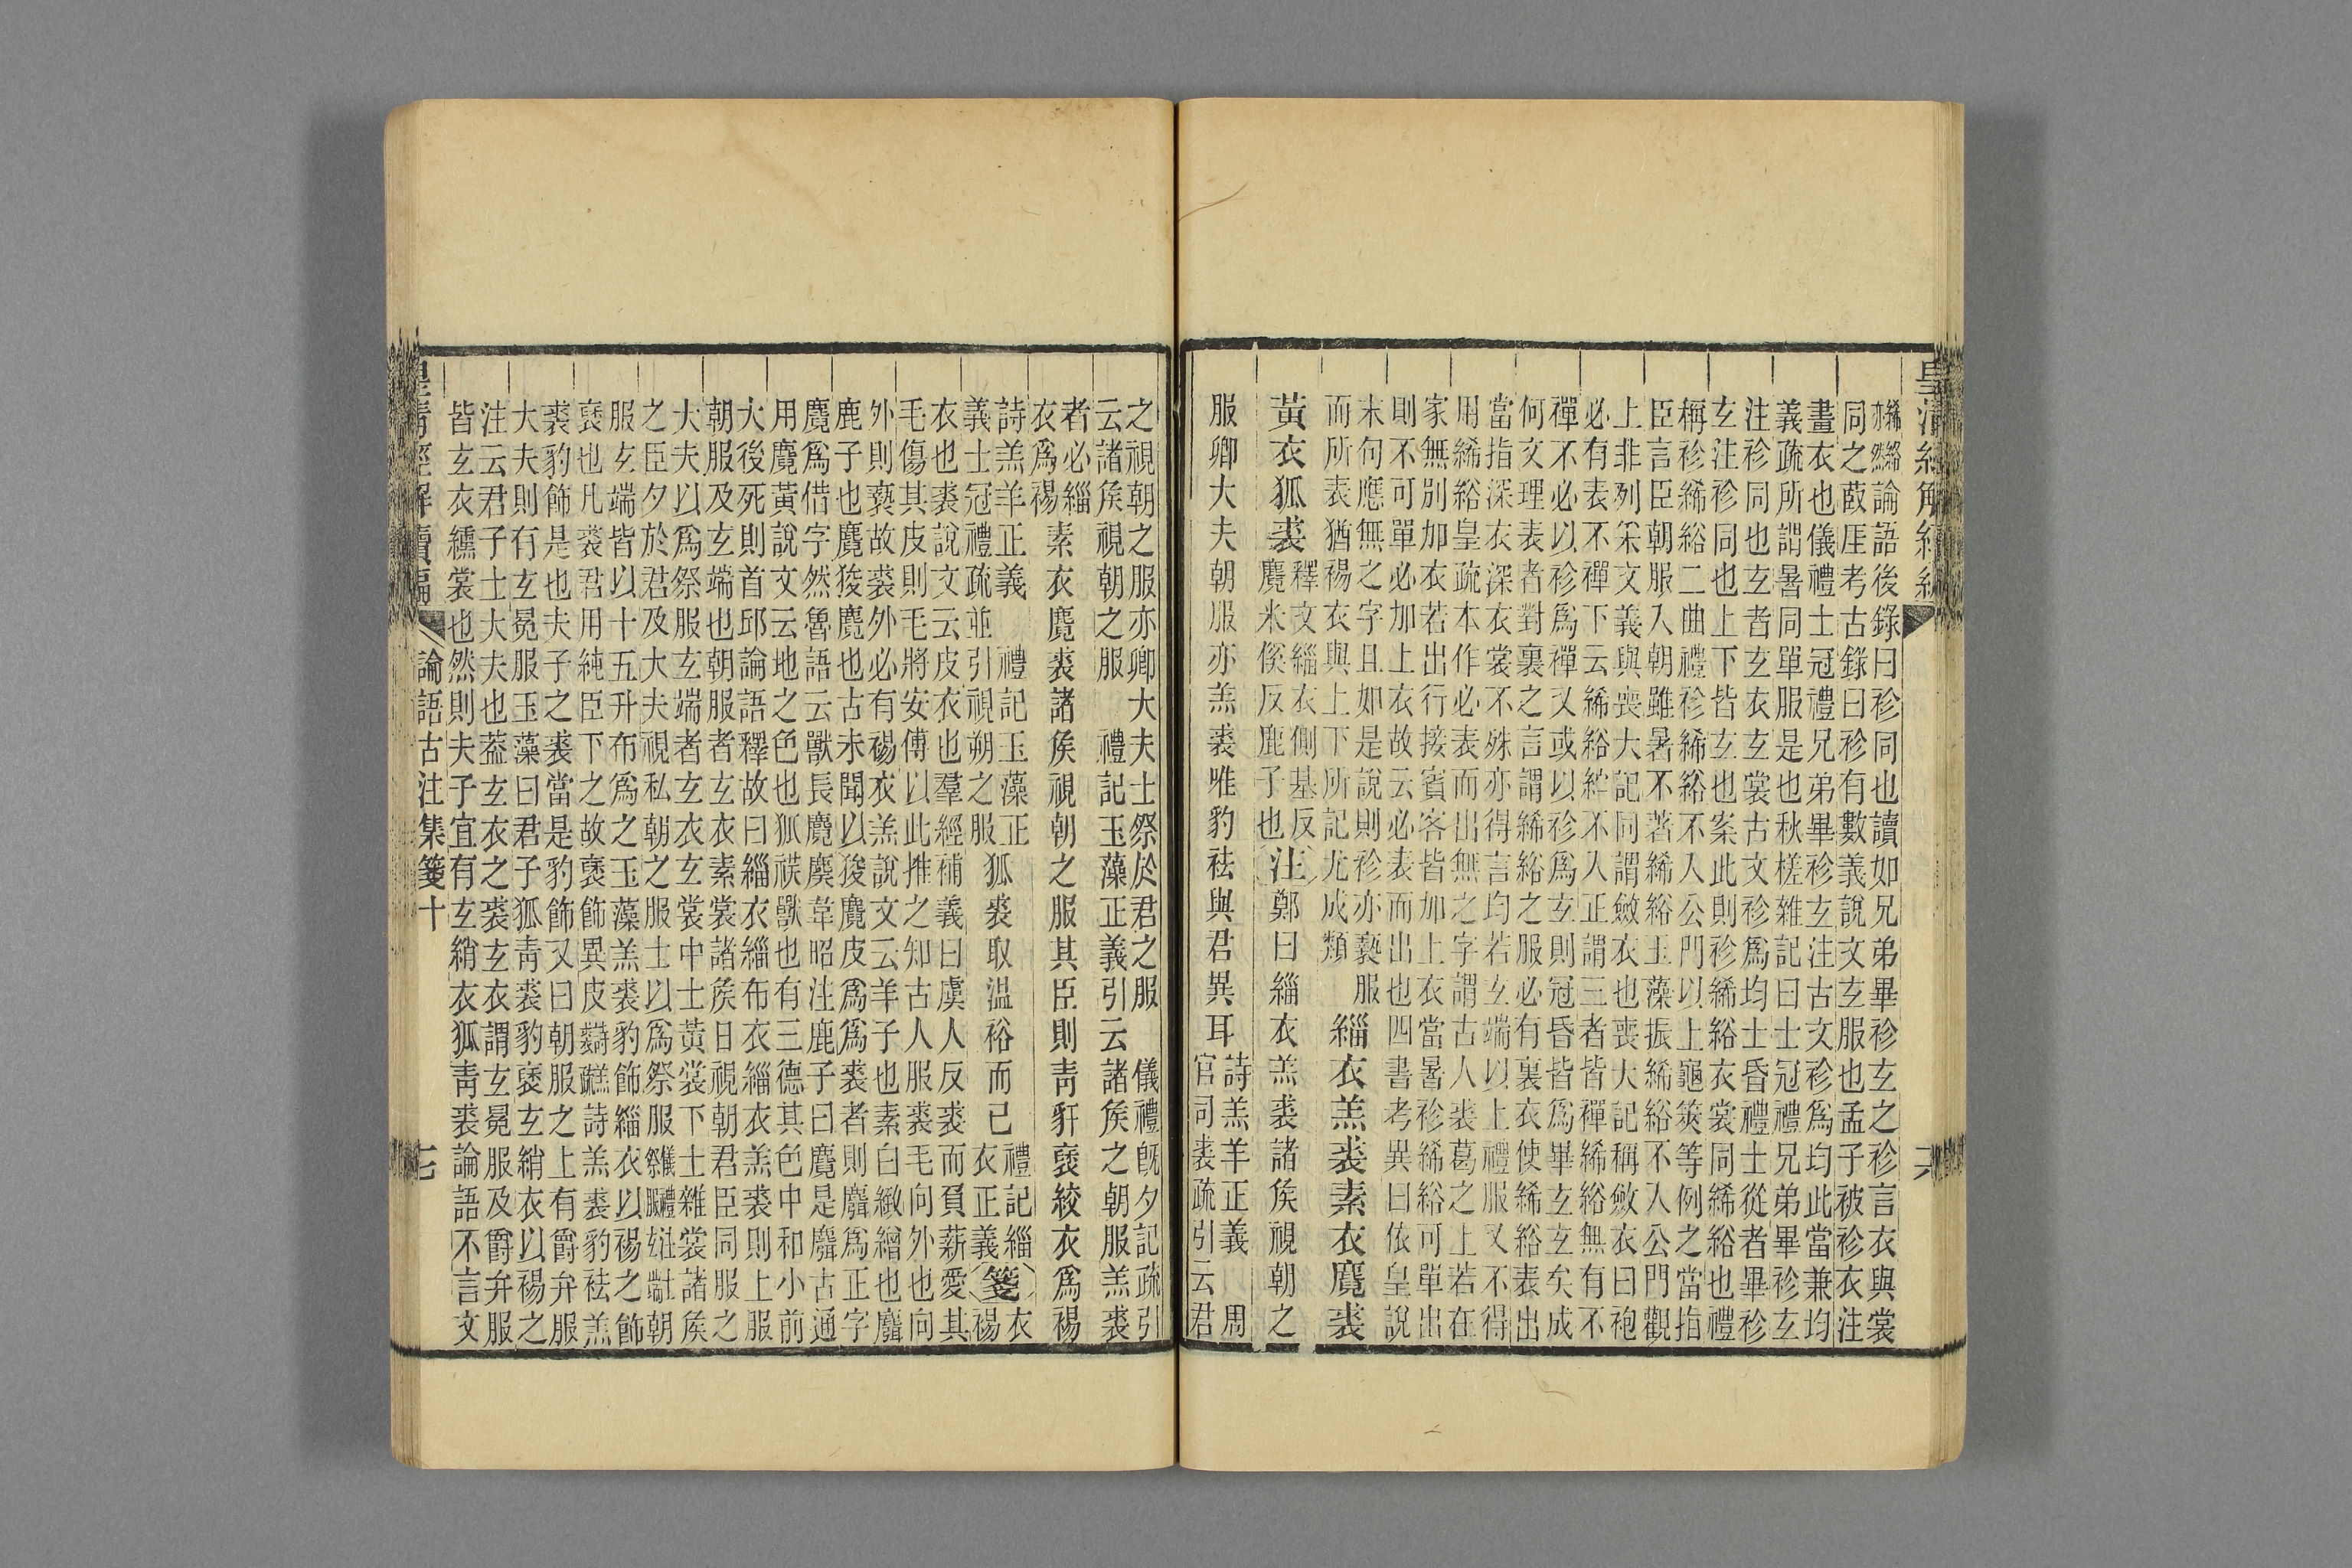 皇清經解續編 六
絺綌亦然論語後錄曰袗同也讀如兄弟畢袗玄之袗言衣與裳
同之叚厓考古錄曰袗有數義說文玄服也孟子被袗衣注
畫衣也儀禮士冠禮兄弟畢袗玄注古文袗爲均此當兼均
義疏所謂暑同單服是也秋槎雜記曰士冠禮兄弟畢袗玄
注袗同也玄者玄衣玄裳古文袗爲均士昏禮士從者畢袗
玄注袗同也上下皆玄也案此則袗絺綌衣裳同絺綌也禮
稱袗絺綌二曲禮袗絺綌不入公門以上龜筴等例之當指
臣言臣朝服入朝雖暑不著絺綌玉藻振絺綌不入公門觀
上非列采文義與喪大記同謂斂衣也喪大記稱斂衣曰袍
必有表不襌下云絺綌紵不入正謂三者皆襌絺綌無有不
襌不必以袗爲襌又或以袗爲玄則冠昏皆爲畢玄玄矣成
何文理表者對裏之言謂絺綌之服必有裏衣使絺綌表出
當指深衣深衣裳不殊亦得言均若玄端以上禮服又不得
用絺綌皇疏本作必表而出無之字謂古人裘葛之上若在
家無別加衣若出行接賓客皆加上衣當暑袗絺綌可單出
則不可單必加上衣故云必表而出也四書考異曰依皇說
末句應無之字且如是說則袗亦褻服
而所表猶裼衣與上下所記尤成類
緇衣羔裘素衣麑裘
黃衣狐裘 釋文緇衣側基反
麑米傒反鹿子也 注 鄭曰緇衣羔裘諸侯視朝之
服卿大夫朝服亦羔裘唯豹祛與君異耳 詩羔羊正義 周
官司裘疏引云君
之視朝之服亦卿大夫士祭於君之服 儀禮既夕記疏引
云諸侯視朝之服 禮記玉藻正義引云諸侯之朝服羔裘
者必緇
衣爲裼 素衣麑裘諸侯視朝之服其臣則青豻褎絞衣爲裼
詩羔羊正義 禮記玉藻正
義士冠禮疏並引視朔之服 狐裘取温裕而已 禮記緇
衣正義 箋 衣
裼
衣也裘說文云皮衣也羣經補義曰虞人反裘而負薪愛其
毛傷其皮則毛將安傅以此推之知古人服裘毛向外也向
外則褻故裘外必有裼衣羔說文云羊子也素白緻繒也麛
鹿子也麑狻麑也古未聞以狻麑皮爲爲裘者則麛爲正字
麑爲借字然魯語云獸長麑麌韋昭注鹿子曰麑是麛古通
用麑黃說文云地之色也狐䄏獸也有三德其色中和小前
大後死則首邱論語釋故曰緇衣緇布衣緇衣羔裘則上服
朝服及玄端也朝服者玄衣素裳諸侯日視朝君臣同服之
大夫以爲祭服玄端者玄衣玄裳中士黃裳下士雜裳諸侯
之臣夕於君及大夫視私朝之服士以爲祭服 朝
服玄端皆以十五升布爲之玉藻羔裘豹飾緇衣以裼之飾
褎也凡裘君用純臣下之故褎飾異皮 詩羔裘豹袪羔
裘豹飾是也夫子之裘當是豹飾又曰朝服之上有爵弁服
大夫則有玄冕服玉藻曰君子狐青裘豹褎玄綃衣以裼之
注云君子士大夫也葢玄衣之裘玄衣謂玄冕服及爵弁服
皆玄衣纁裳也然則夫子宜有玄綃衣狐青裘論語不言文
皇清經解續編 論語古注集箋十 七